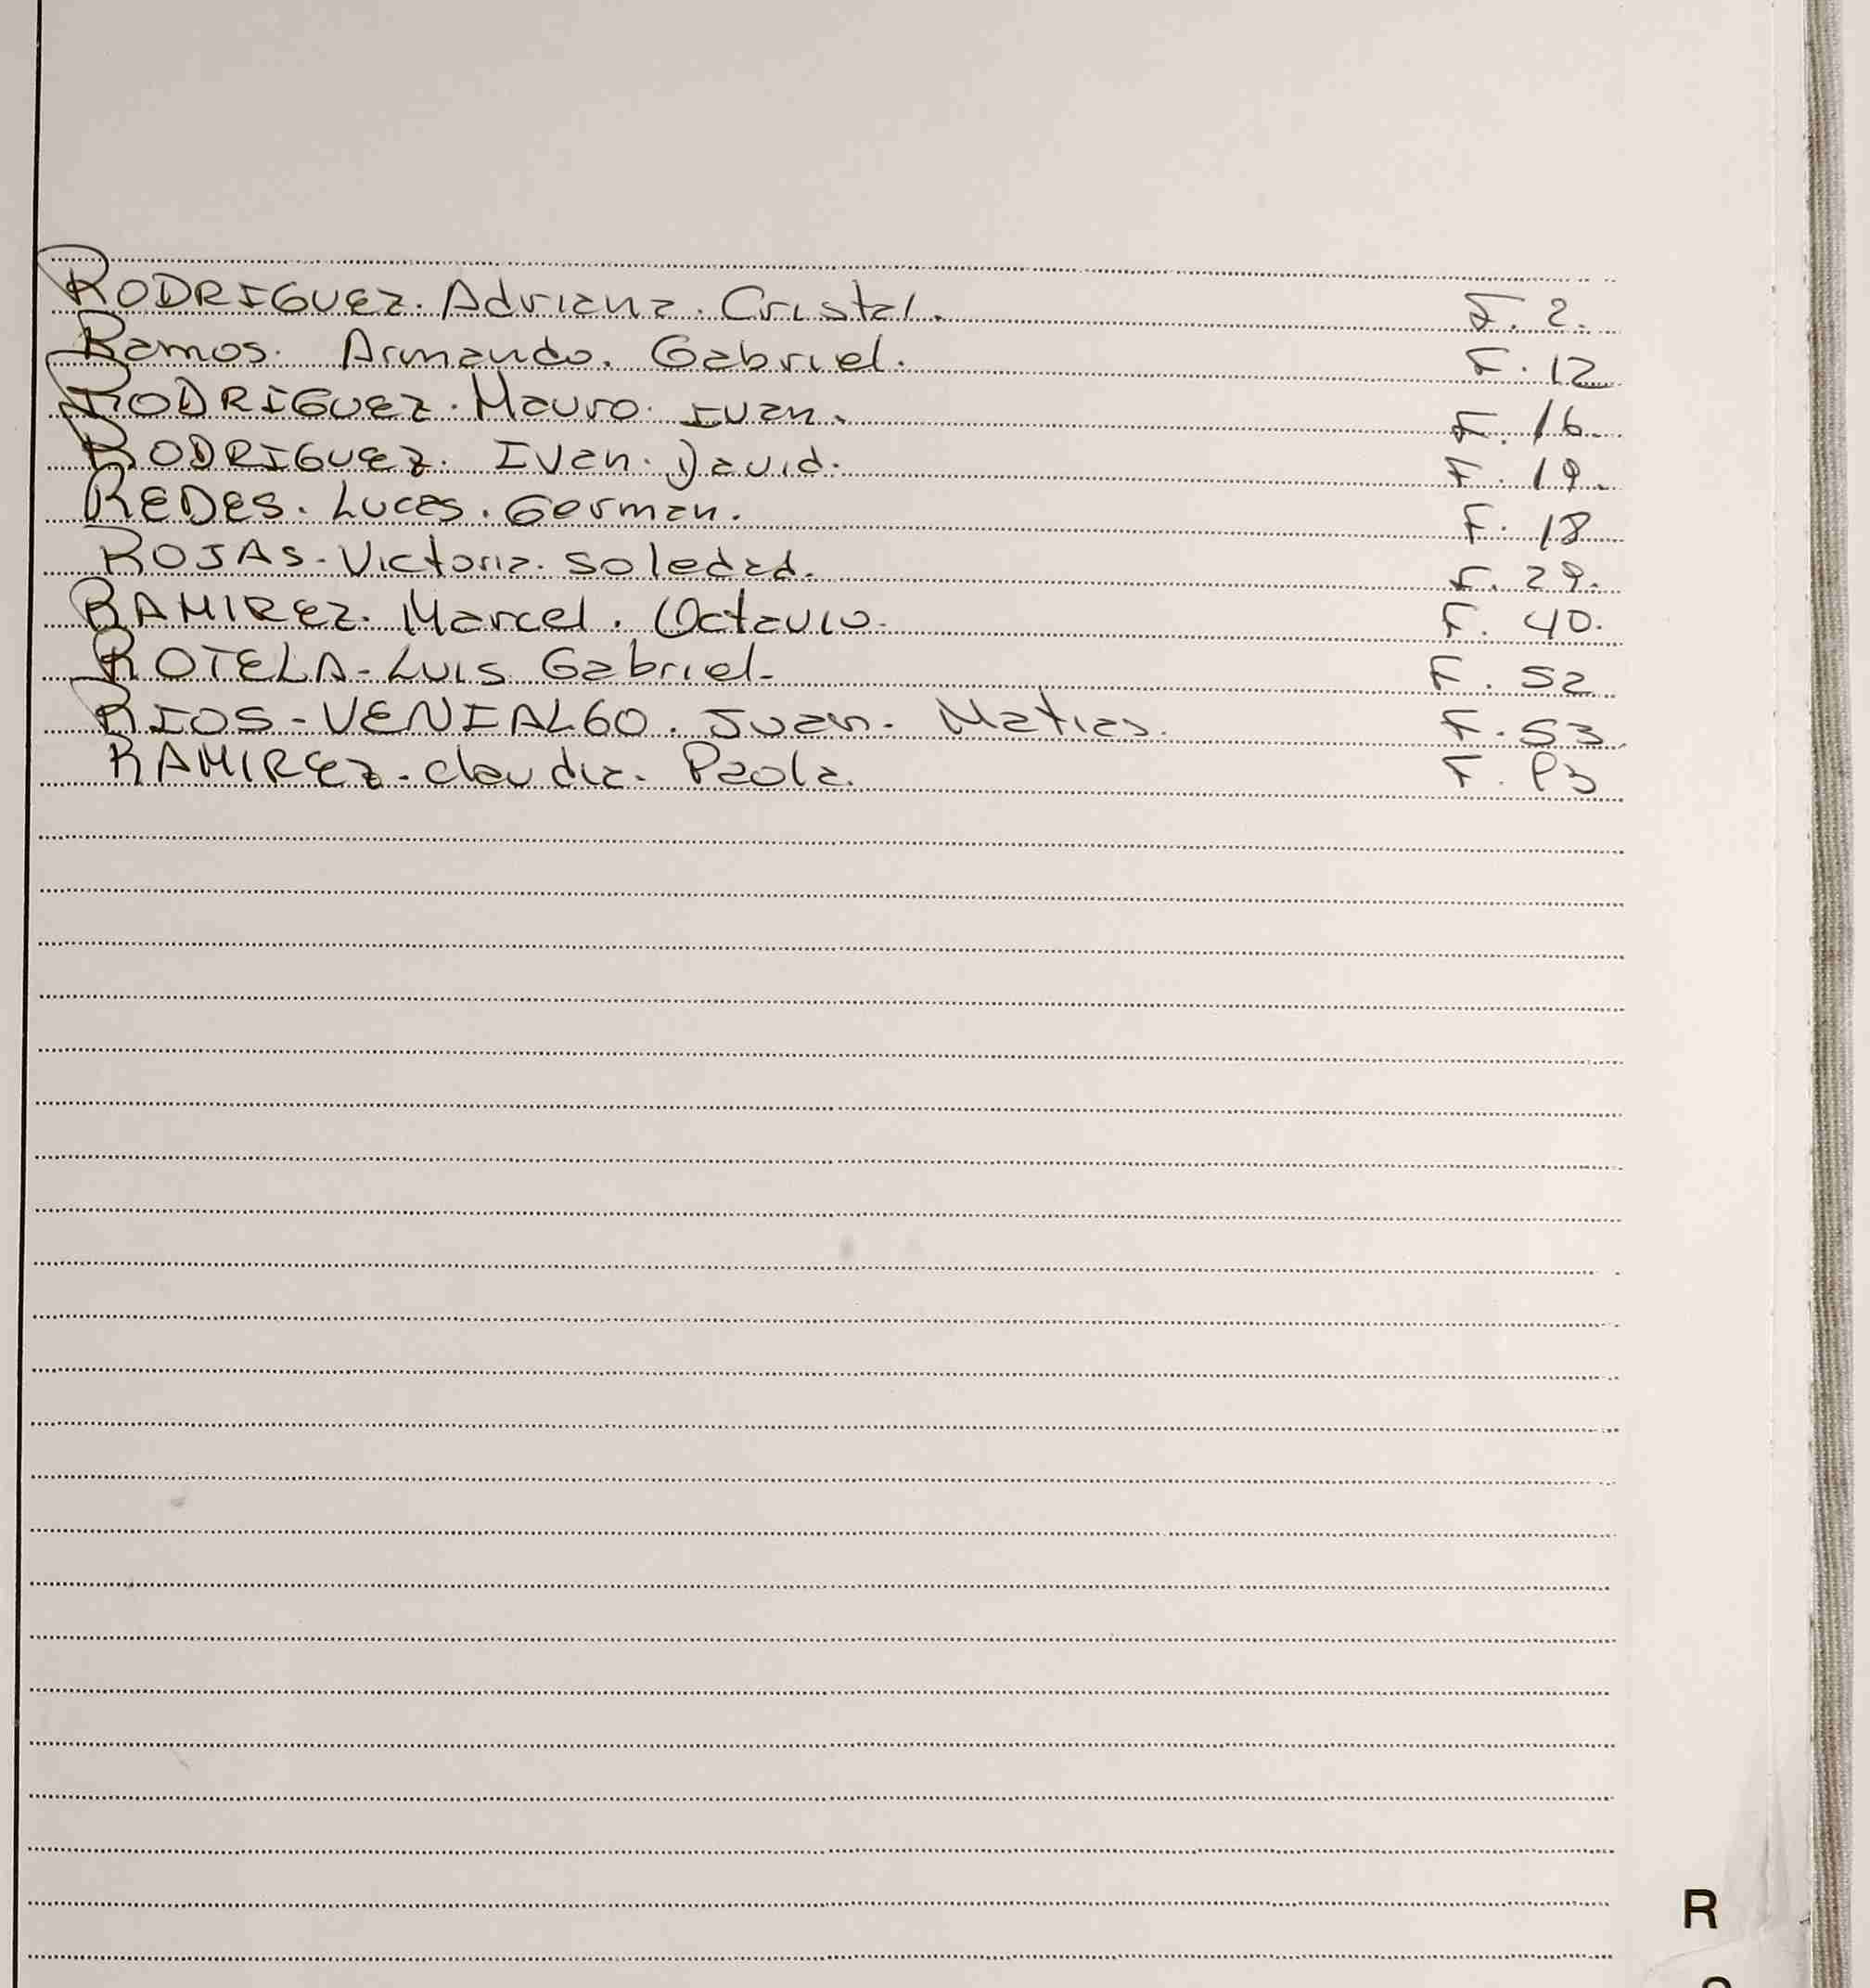 RODRIGUEZ. Adriana. Cristal. F. 2.
Ramos. Armando. Gabriel. F. 12
RODRIGUEZ. Mauro. Ivan. F. 16.
RODRIGUEZ. Ivan. David. F. 19.
REDES. Lucas. German. F. 18
ROJAS-Victoria. Soledad. F. 29.
RAMIREZ. Marcel. Octavio. F. 40.
ROTELA-Luis Gabriel- F. 52
RIOS-VENIALGO. Juan. Matias. F. 53
RAMIREZ-claudia. Paola. F.
R